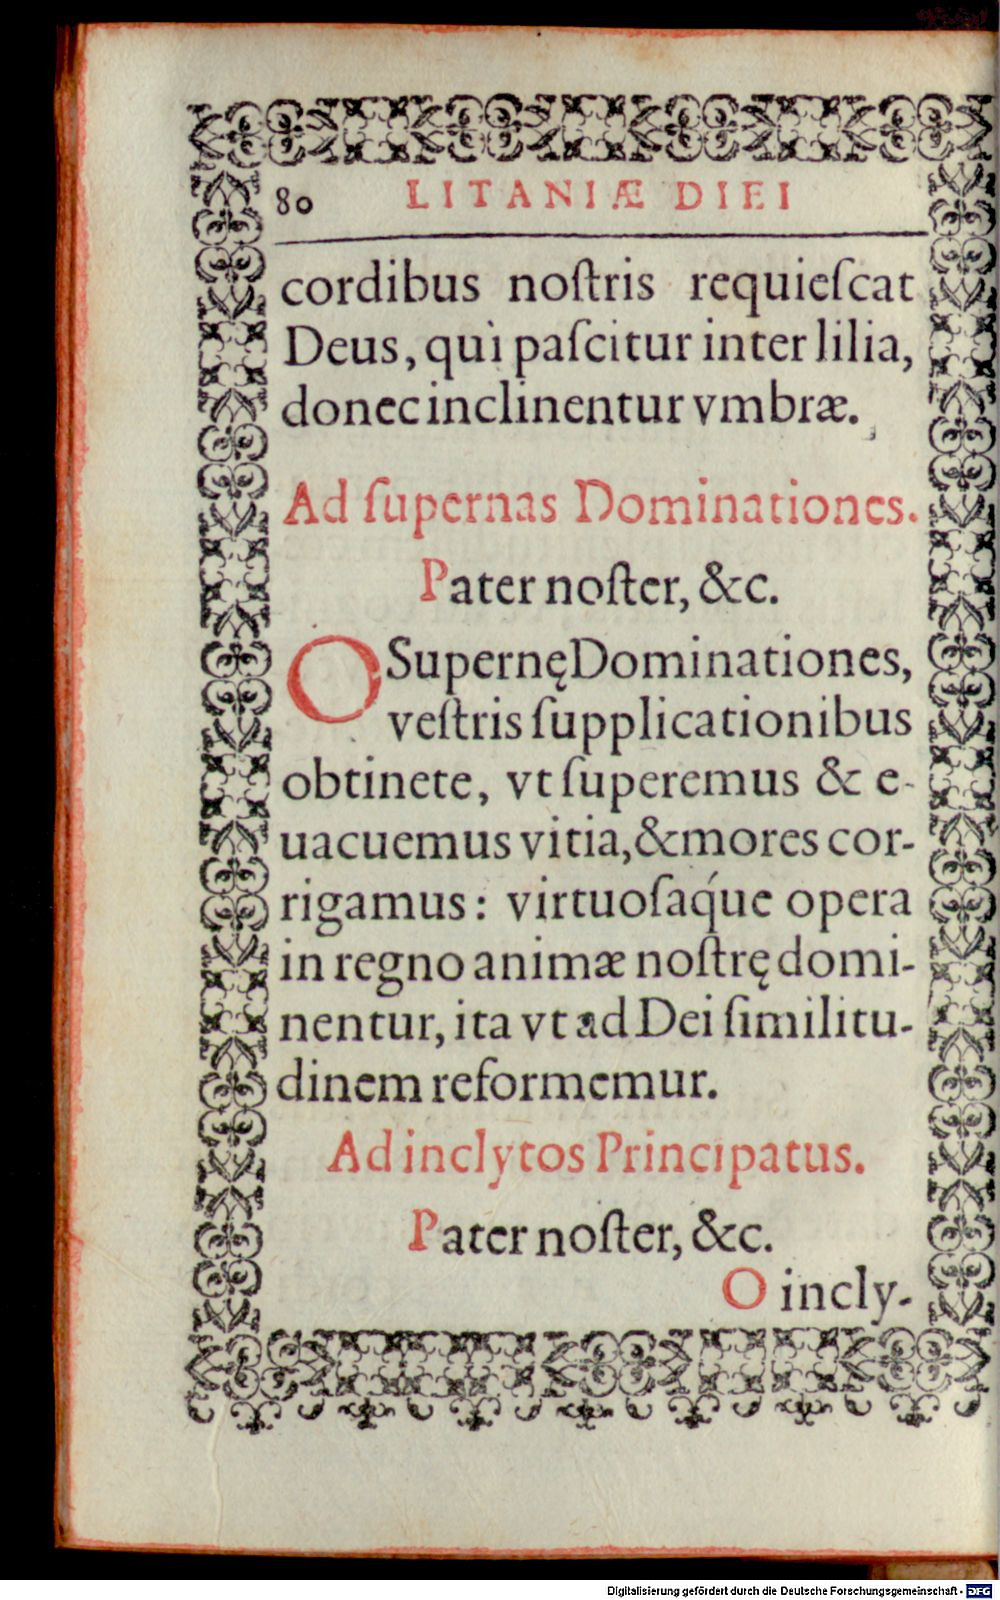 80 LITANIÆ DIEI
cordibus noſtris requieſcat
Deus, qui paſcitur inter lilia,
donec inclinentur vmbræ.
Ad ſupernas Dominationes.
Pater noſter, &c.
O Supernę Dominationes,
veſtris ſupplicationibus
obtinete, vt ſuperemus & e-
uacuemus vitia, & mores cor-
rigamus: virtuoſaq́ue opera
in regno animæ noſtrę domi-
nentur, ita vt ad Dei ſimilitu-
dinem reformemur.
Ad inclytos Principatus.
Pater noſter, &c.
O incly-
Digitalisierung gefördert durch die Deutsche Forschungsgemeinschaft - DFG